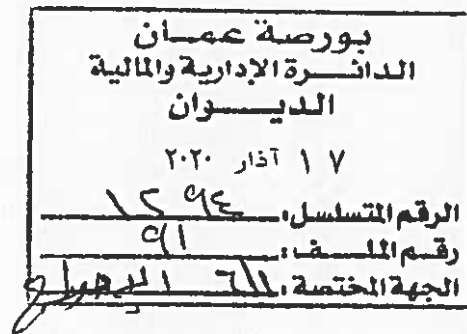 بورصة عمان
الدائرة الإدارية والمالية
الديوان
١٧ آذار ٢٠٢٠
الرقم المتسلسل: ١٢٩٤
رقم الملف: ٩١
الجهة المختصة: